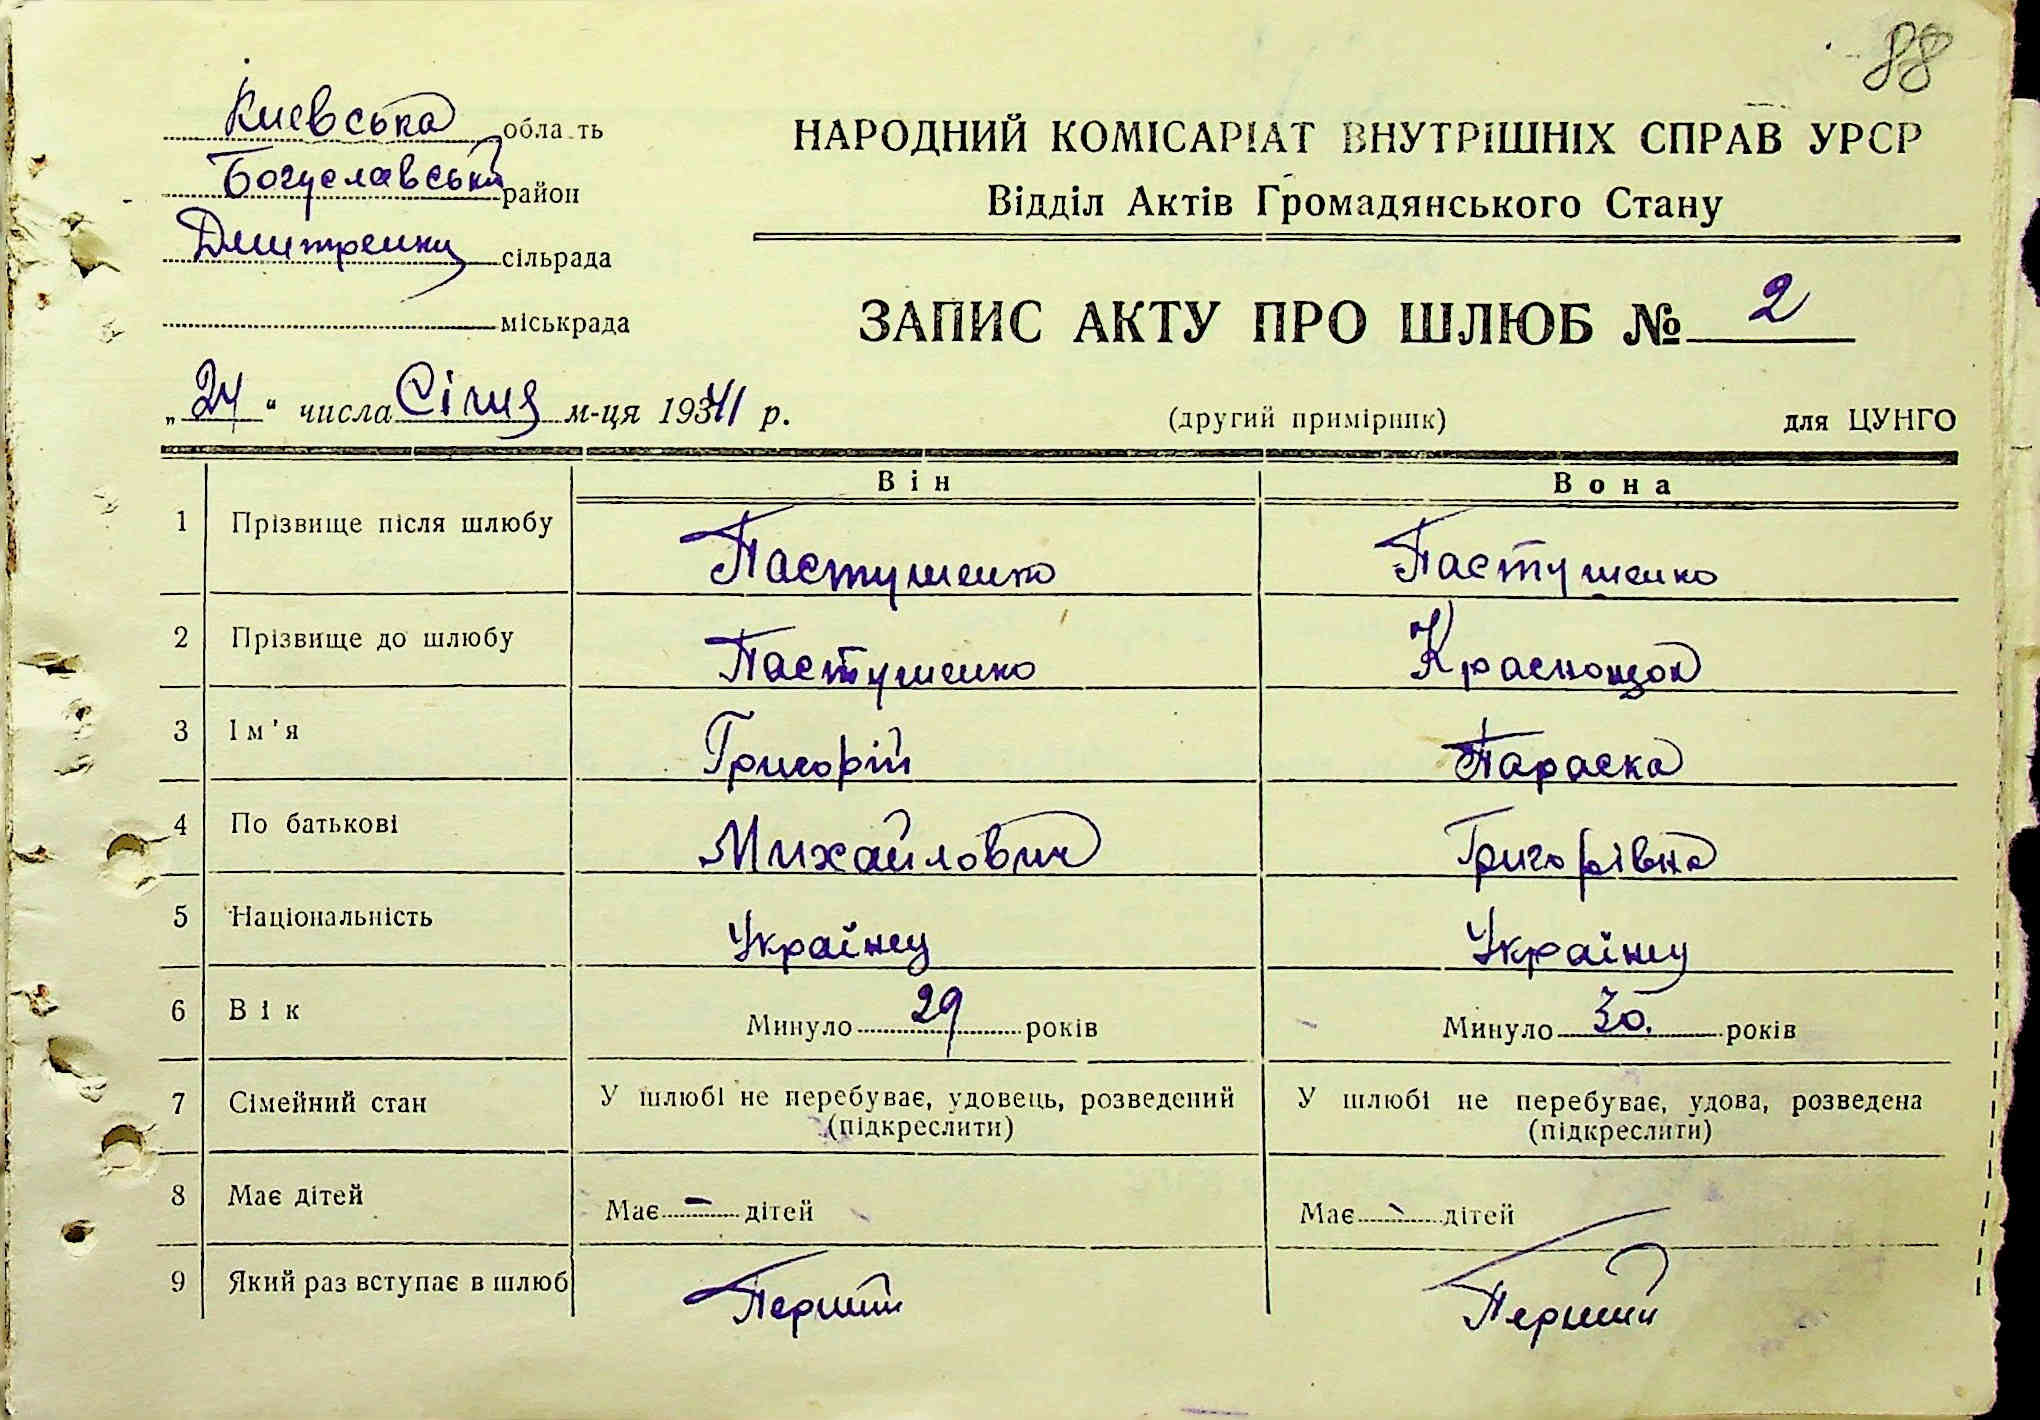 88
Киевська область
Богуславський район
Дмитренки сільрада
міськрада
НАРОДНИЙ КОМІСАРІАТ ВНУТРІШНІХ СПРАВ УРСР
Відділ Актів Громадянського Стану
ЗАПИС АКТУ ПРО ШЛЮБ № 2
„24“ числа Січня м-ця 1941 р.
(другий примірник)
для ЦУНГО
Він Вона
1 Прізвище після шлюбу Пастушенко Пастушенко
2 Прізвище до шлюбу Пастушенко Красношок
3 Ім'я Григорій Параска
4 По батькові Михайлович Григорівна
5 Національність Українец Українец
6 Вік Минуло 29 років Минуло 30. років
7 Сімейний стан У шлюбі не перебуває, удовець, розведений У шлюбі не перебуває, удова, розведена
(підкреслити) (підкреслити)
8 Має дітей Має - дітей Має - дітей
9 Який раз вступає в шлюб Перший Перший